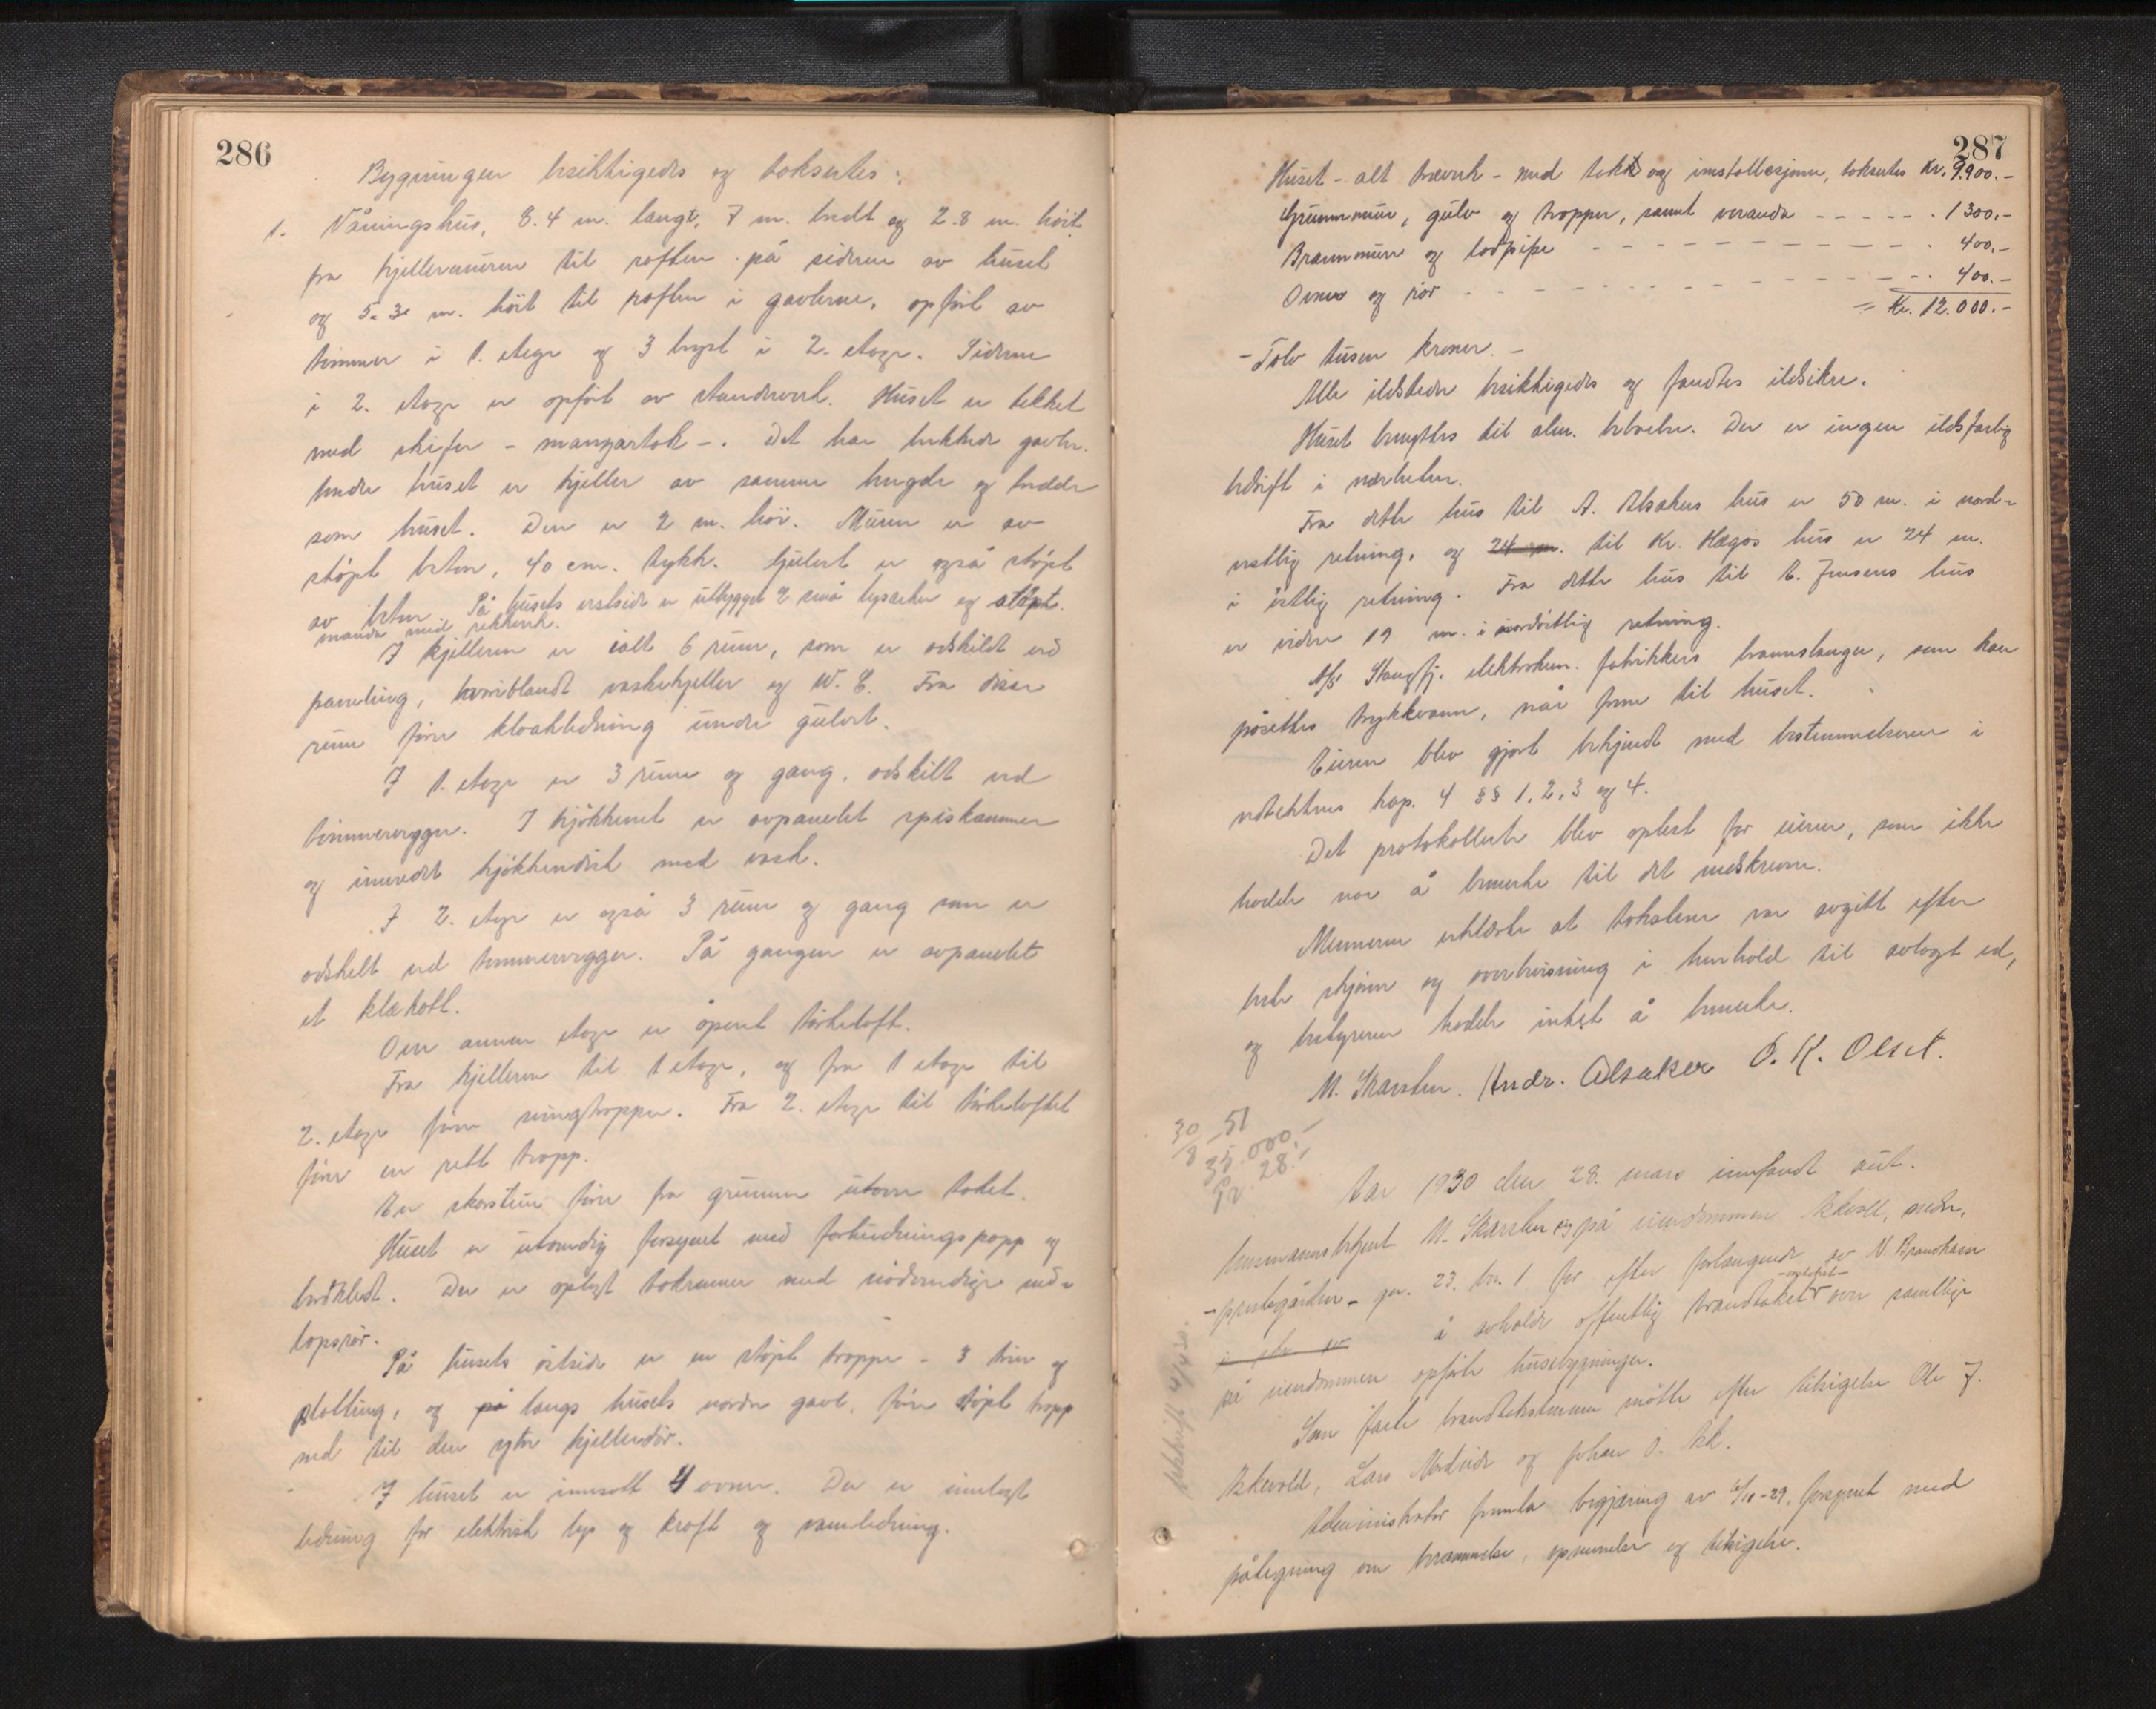 286
Bygningen besiktigedes og taksertes:
1. Våningshus, 8.4 m. langt, 7 m. bredt og 2.8 m. höit
fra kjellermuren til raften på sidene av huset
og 5.3 m. höit til raften i gavlerne, opfört av
tömmer i 1. etage og 3 bryst i 2. etage. Siderne
i 2. etage er opfört av standverk. Huset er tekket
med skifer - mansartak -. Det har brukkede gavler.
Under huset er kjeller av samme lengde og bredde
som huset. Den er 2 m. höi. Muren er av
stöpt beton, 40 cm. tykk. Gulvet er også stöpt
av beton. På husets vestside er utbygget 2 små lysarker og stöpt
veranda med rekkverk.
I kjelleren er ialt 6 rum, som er adskildt ved
paneling, hvoriblandt vaskekjeller og W. C. Fra disse
rum förer kloakledning under gulvet.
I 1. etage er 3 rum og gang, adskilt ved
tömmervegger. I kjökkenet er avpanelet spiskammer
og innredet kjökkendisk med vask.
I 2. etage er også 3 rum og gang som er
adskilt ved tömmervegger. På gangen er avpanelet
et klækott.
Over annen etage er åpent törkeloft.
Fra kjelleren til 1 etage, og fra 1 etage til
2. etage förer svingtrapper. Fra 2. etage til törkeloftet
förer en rett trapp.
En skorstein förer fra grunnen utover taket.
Huset er utvendig forsynet med forhudningspapp og
bordkledt. Der er oplagt takrenner med nödvendige ned-
løpsrör.
På husets östside er en stöpt trappe - 3 trin og
platting, og på langs husets nordre gavl, förer stöpt trapp
ned til den ytre kjellerdör.
I huset er innsatt 4 ovner. Der er innlagt
ledning for elektrisk lys og kraft og vannledning.
287
Huset - alt treverk - med takk og installasjoner, taksertes Kr. 9.900.-
Grunnmur, gulv og trapper, samt veranda - - - - - . 1300.-
Brannmur og takpipe - - - - - . 400.-
Ovner og rör - - - - - . 400.-
= Kr. 12.000.-
- Tolv tusen kroner. -
Alle ildsteder besiktigedes og fandtes ildsikre.
Huset benyttes til alm. beboelse. Der er ingen ildsfarlig
bedrift i nærheten.
Fra dette hus til A. Alsakers hus er 50 m. i nord-
vestlig retning, og 24 m. til Kr. Hægøs hus er 24 m.
i östlig retning. Fra dette hus til E. Jensens hus
er videre 19 m. i nordöstlig retning.
A/S Stangfj. elektrokem. fabrikkers brannslanger, som kan
påsettes trykkvann, når frem til huset.
Eieren blev gjort bekjendt med bestemmelserne i
vedtektenes kap. 4 §§ 1, 2, 3 og 4.
Det protokollerte blev oplest for eieren, som ikke
hadde noe å bemerke til det nedskrevne.
Mennerne erklærte at taksten var avgitt efter
beste skjönn og overbevisning i henhold til avlagt ed,
og bestyreren hadde intet å bemerke.
M. Skarsten. Andr. Alsaker O. K. Olset.
30/8 - 51
35.000.-
Pr. 28.-
Aar 1930 den 28. mars innfandt aut.
lensmannsbetjent M. Skarsten sig på eiendommen Askvoll, nedre,
- prestegården - gr. 23. br. 1. for efter forlangende av N. Brandhaem
å avholde offentlig brandtakst over samtlige
på eiendommen opförte husebygninger.
Som faste brandtakstmenn mötte efter tilsigelse Ole J.
Askvold, Lars Nedvide og Johan O. Ask.
Administrator fremla begjæring av 6/10-29, forsynet med
påtegning om berammelse, opnevnelse og tilsigelse.
Utskrift 4/4 30.